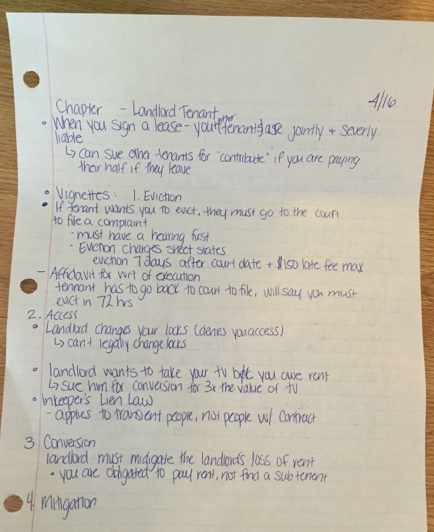 4/16
Chapter - Landlord Tenant
• When you sign a lease - you + other tenants are jointly + severly
liable
↳ can sue other tenants for "contribute" if you are paying
their half if they leave
• Vignettes: 1. Eviction
• If tenant wants you to evict, they must go to the court
to file a complaint
- must have a hearing first
- Eviction charges street states
eviction 7 days after court date + $150 late fee max
- Affidavit for writ of execution
tennant has to go back to court to file, will say you must
evict in 72 hrs
2. Access
• Landlord changes your locks (denies you access)
↳ can't legally change locks
• landlord wants to take your tv b/c you owe rent
↳ sue him for conversion for 3x the value of tv
• Inkeeper's Lien Law
- applies to transient people, not people w/ contract
3. Conversion
landlord must midigate the landlord's loss of rent
• you are obligated to pay rent, not find a subtenent
4. Mitigation